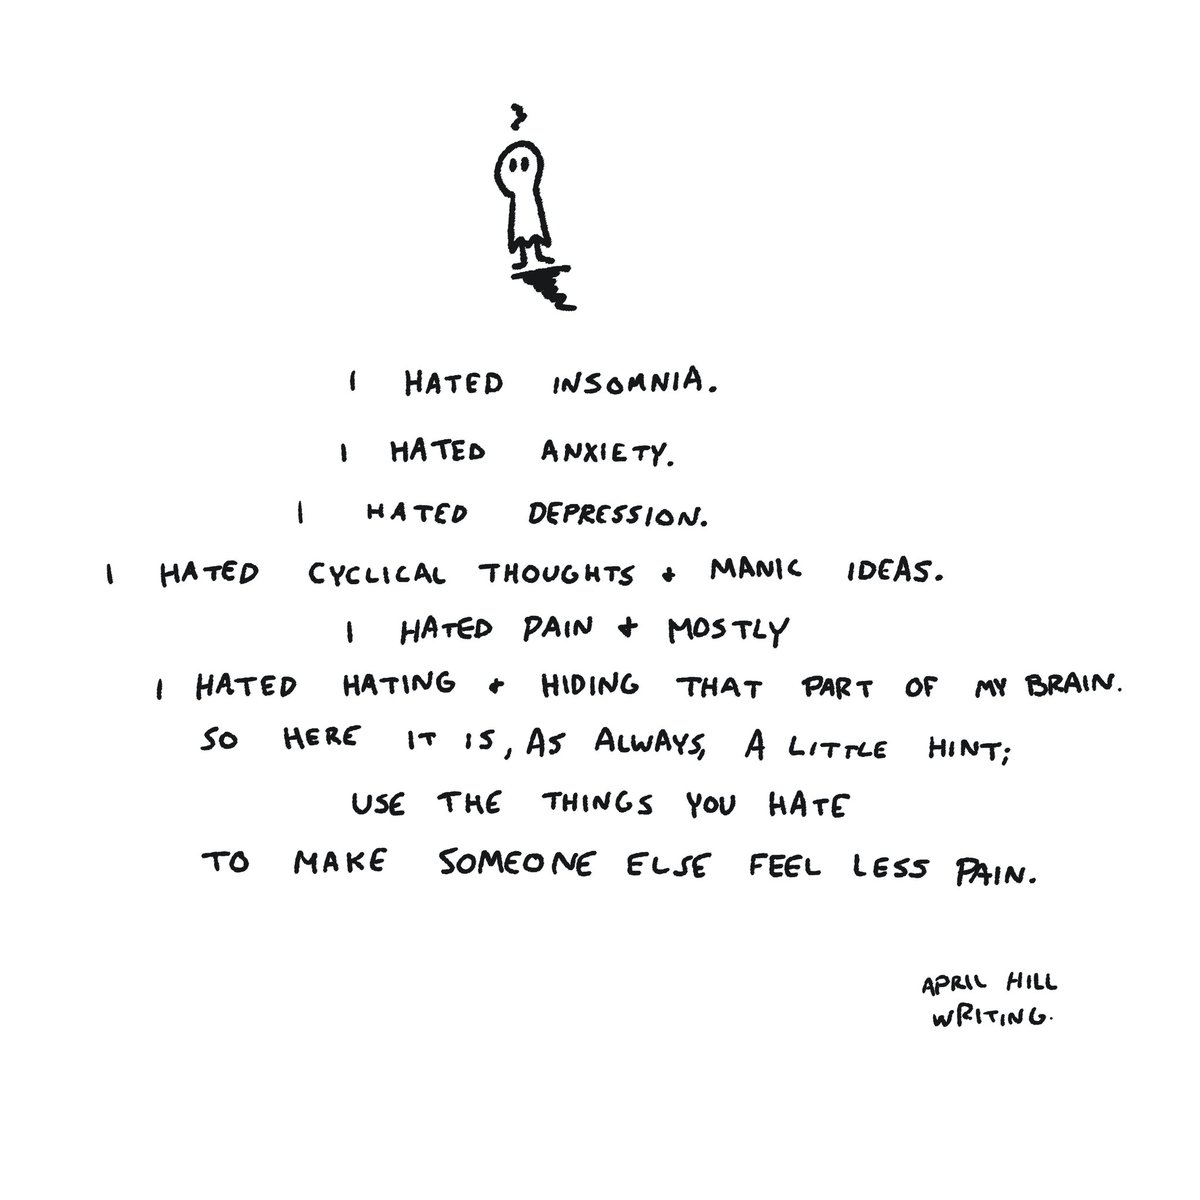 I HATED INSOMNIA.
I HATED ANXIETY.
I HATED DEPRESSION.
I HATED CYCLICAL THOUGHTS + MANIC IDEAS.
I HATED PAIN + MOSTLY
I HATED HATING + HIDING THAT PART OF MY BRAIN.
SO HERE IT IS, AS ALWAYS, A LITTLE HINT;
USE THE THINGS YOU HATE
TO MAKE SOMEONE ELSE FEEL LESS PAIN.
APRIL HILL
WRITING.